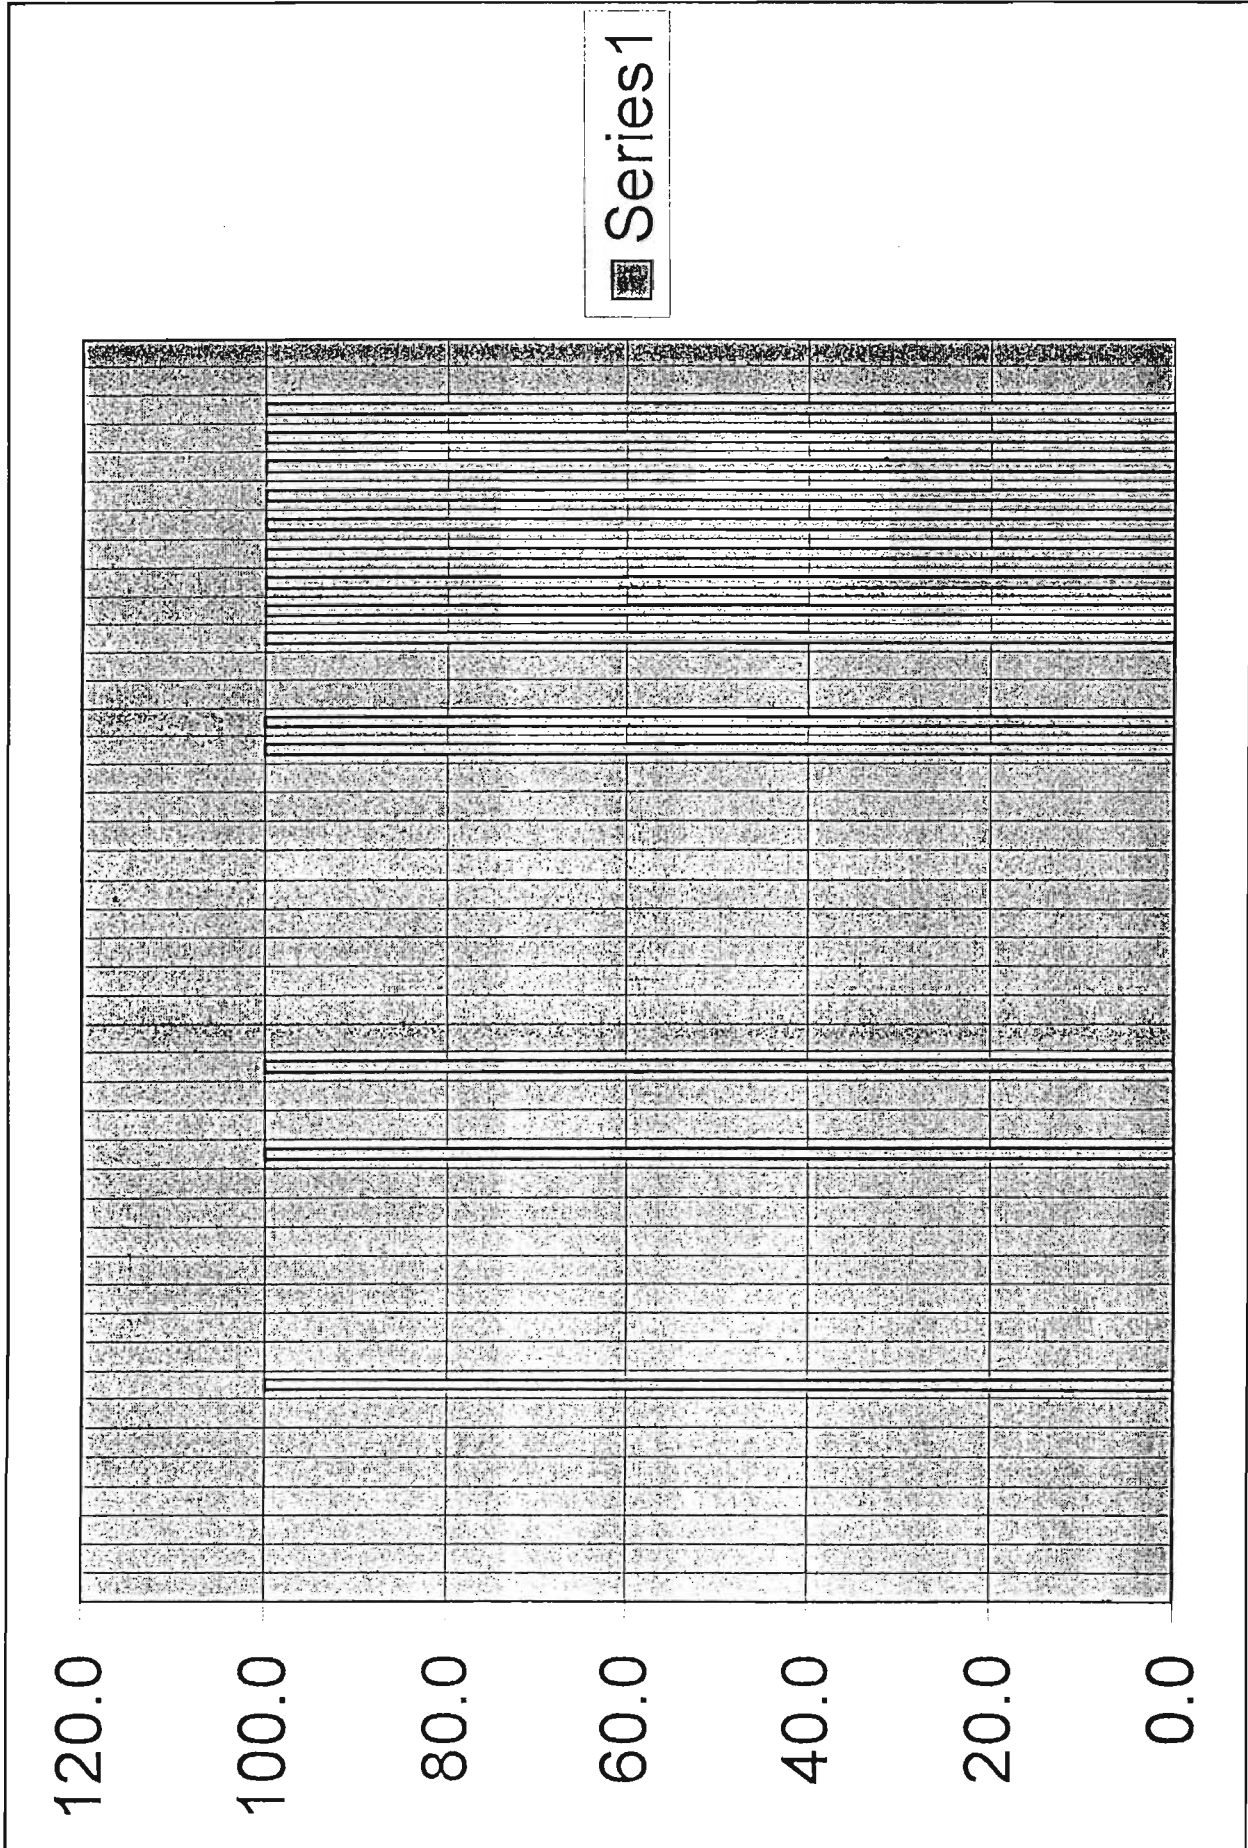 120.0
100.0
80.0
60.0
40.0
20.0
0.0
Series1